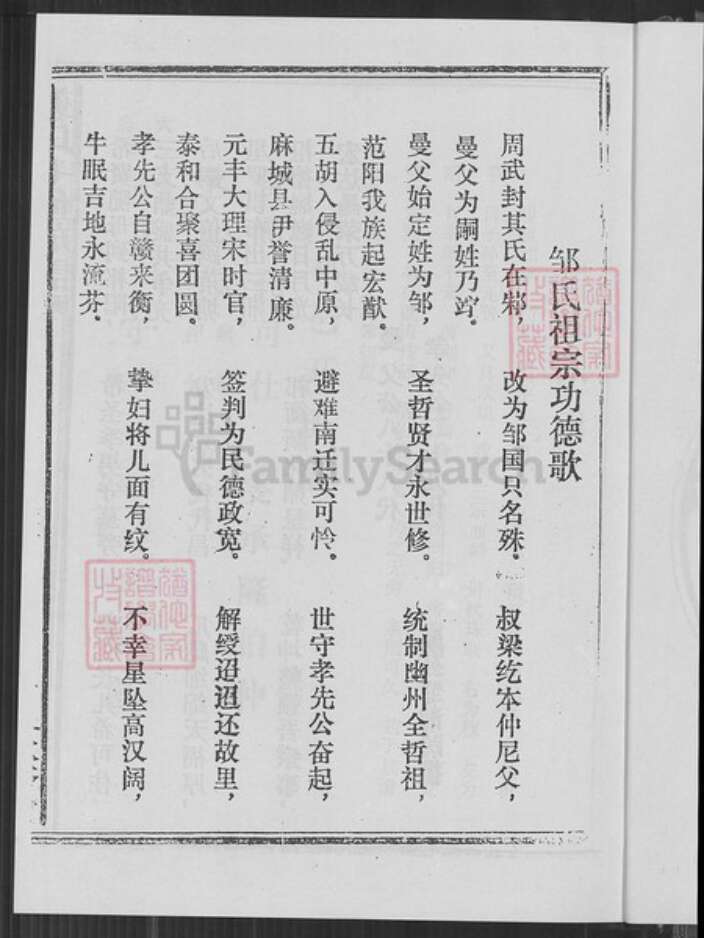 邹氏祖宗功德歌
周武封其氏在邾，改为邹国只名殊。叔梁纥本仲尼父，
曼父为嗣姓乃鄹。
曼父始定姓为邹，圣哲贤才永世修。统制幽州全哲祖，
范阳我族起宏猷。
五胡入侵乱中原，避难南迁实可怜。世守孝先公奋起，
麻城县尹誉清廉。
元丰大理宋时官，签判为民德政宽。解绶迢迢还故里，
泰和合聚喜团圆。
孝先公自赣来衡，挚妇将儿面有纹。不幸星坠高汉阔，
牛眠吉地永流芬。
FamilySearch